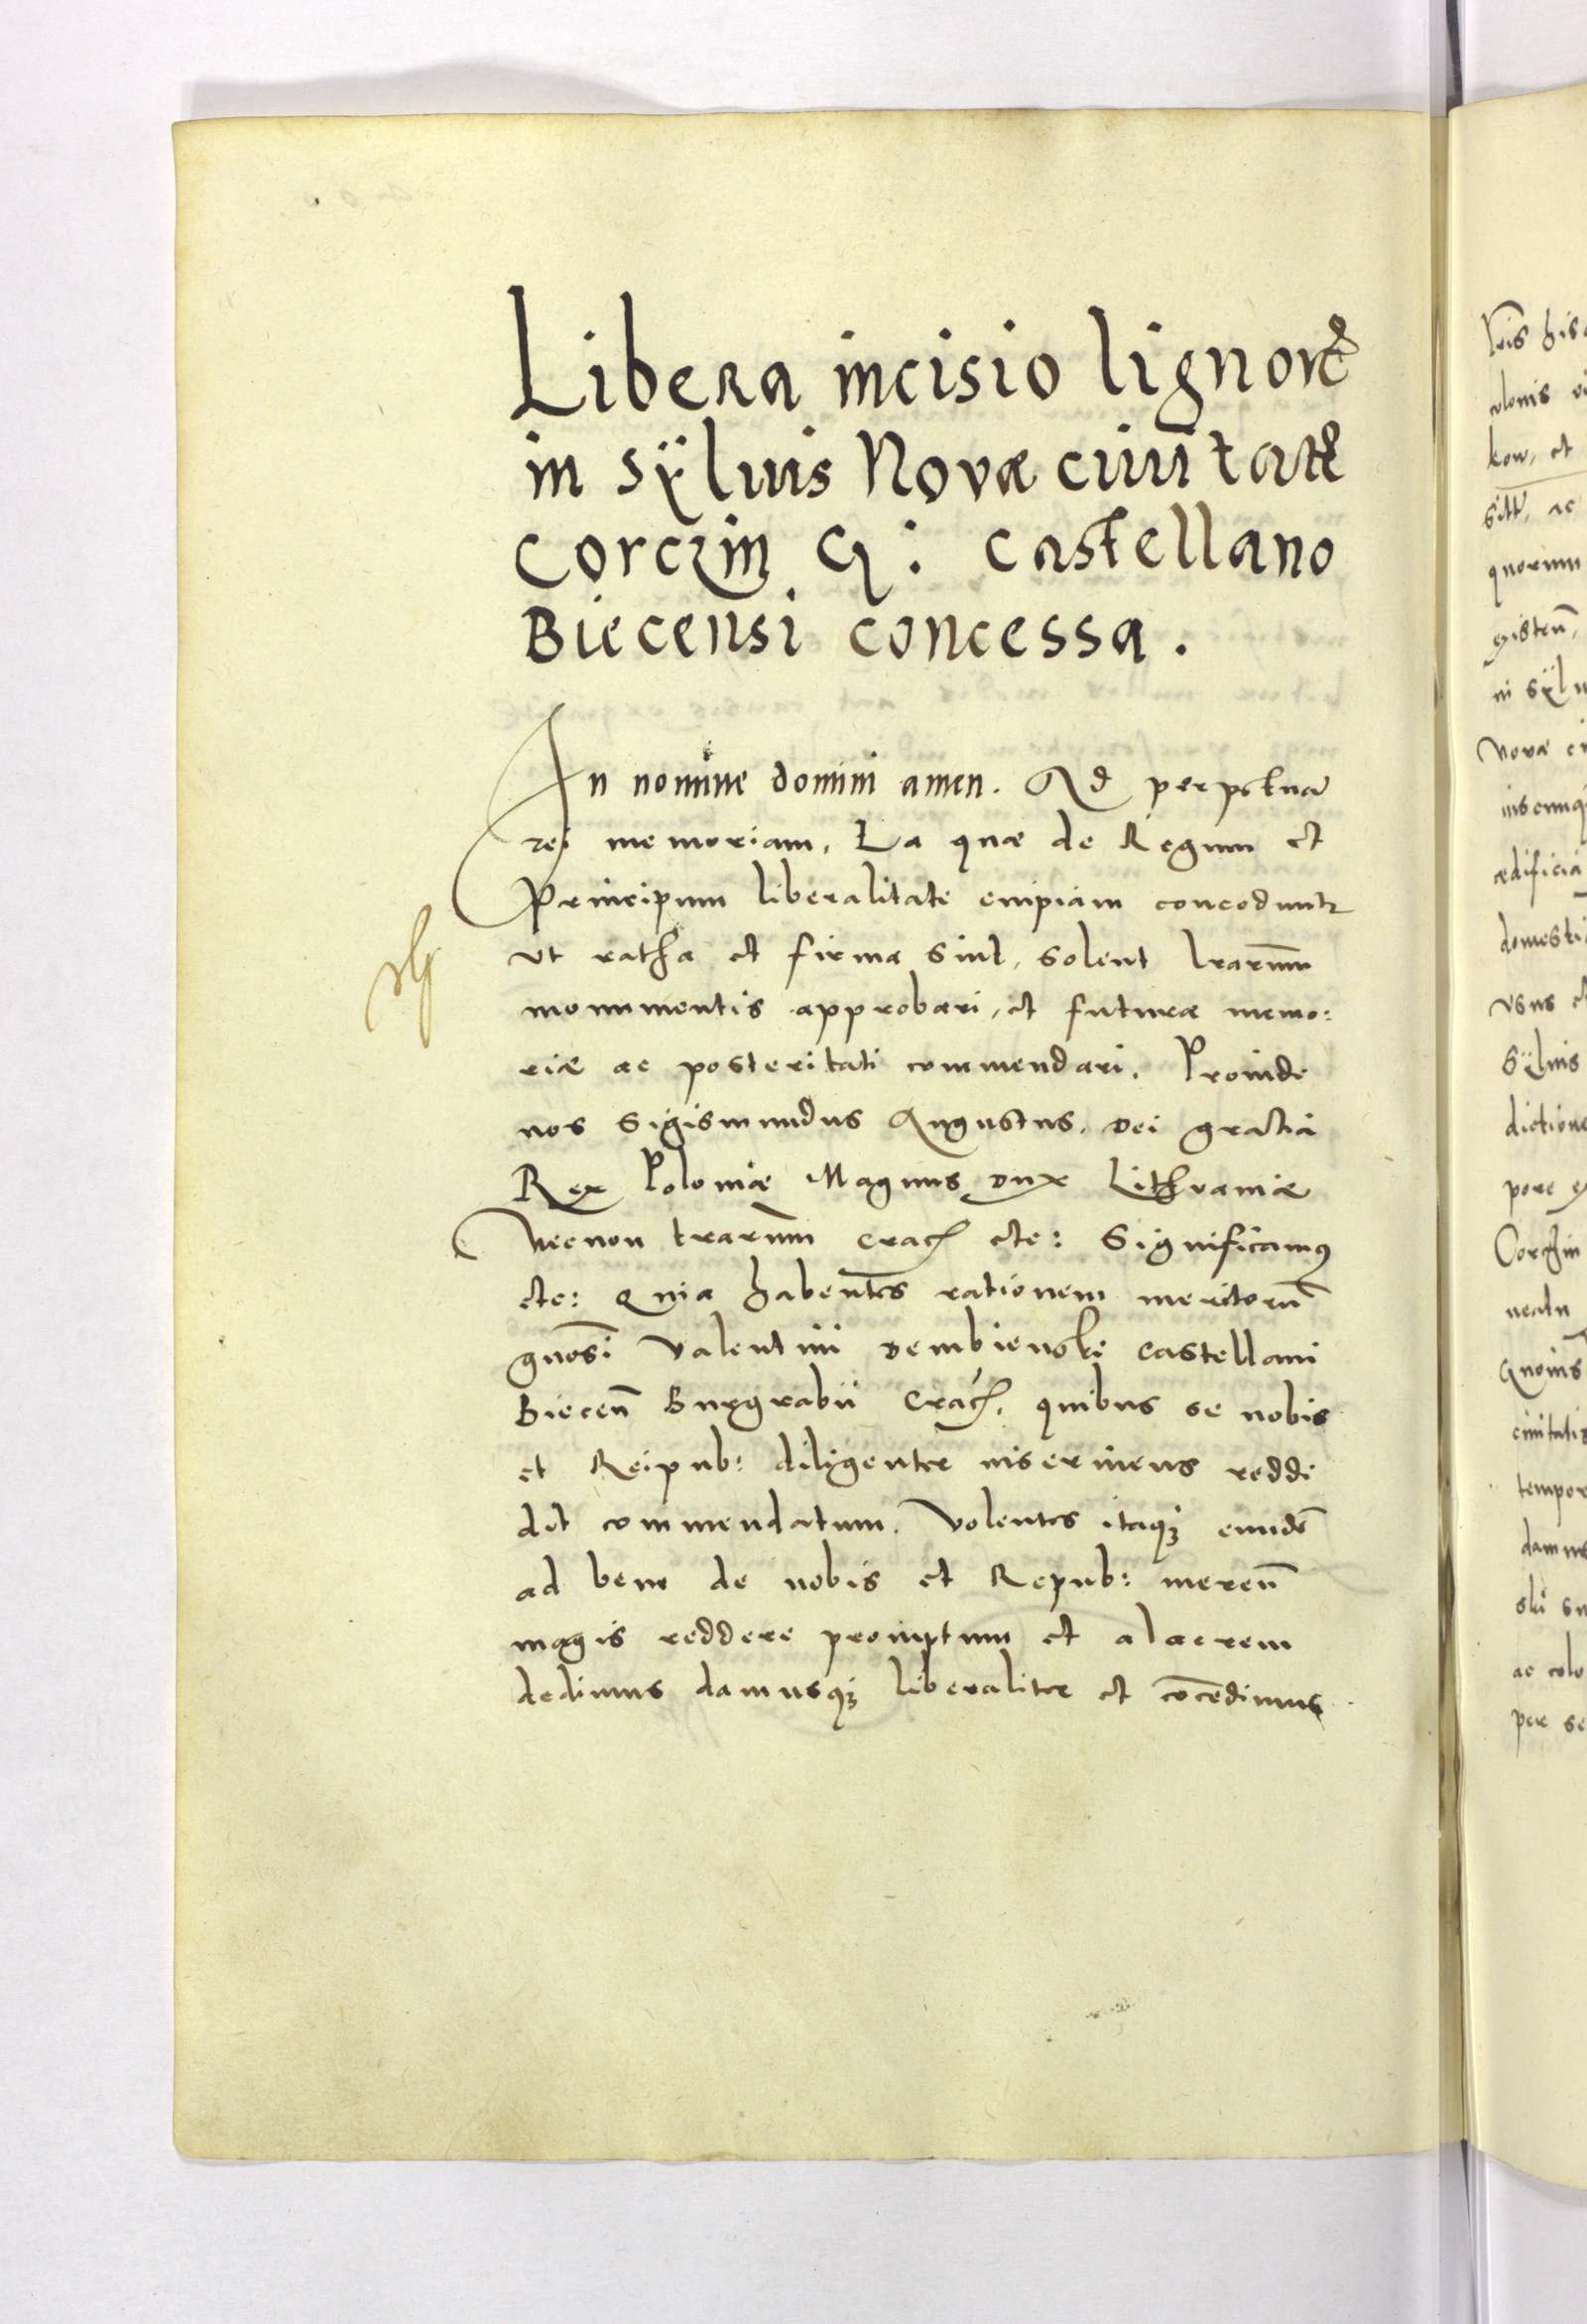 Libera incisio lignor
in sÿluis Novæ ciuitat
Corczin G: castellano
Biecensi concessa.
In nomine domini amen. Ad perpetuã
rei memoriam. Ea quæ de Regum et
Principum liberalitate cuipiam concedunt
ut ratha et firma sint, solent lrarum̃
monumentis approbari, et futuræ memo:
riæ ac posteritati commendari. Proinde
nos Sigismundus Augustus. Dei gratia
Rex Poloniæ Magnus dux Lithvaniæ
Necnon trarum̃ Crac etc: Significamus
etc: Quia habentes rationem meritorũ
gnosi Valentini Dembienski Castellani
Biecen̄ Burgrabii Crac. quibus se nobis
et Reipub: diligenter inseruiens reddi
dit commendatum. Volentes itaqꝫ eundē
ad bene de nobis et Repub: meren̄
magis reddere promptum et alacrem
dedimus damusqꝫ liberaliter et cōcedimus
lris his
colonis
kow, et
sitt, ac
quorum
existen̄,
in sÿlu
Novæ ci
ædificia
domesti
usus et
Sÿluis
dictione
pore
Corczin
Quouis
ciuitatis
tempor
damus
ski su
ac colo
per se